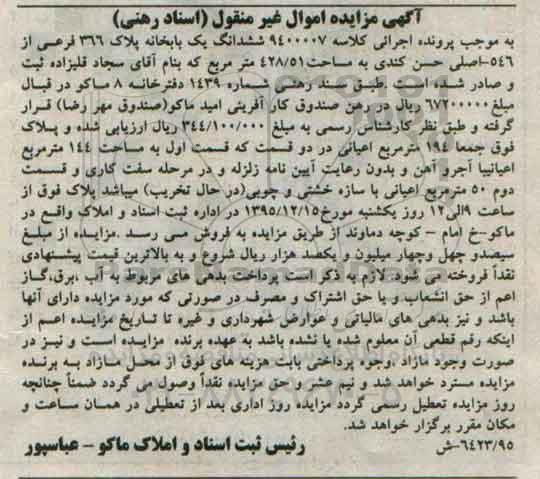 آگهی مزایده اموال غیر منقول (اسناد رهنی)
به موجب پرونده اجرائی کلاسه ۹۴۰۰۰۰۷ ششدانگ یک بابخانه پلاک ۳۶۶ فرعی از
۵۴۶-اصلی حسن کندی به مساحت۴۲۸/۵۱ متر مربع که بنام آقای سجاد قلیزاده ثبت
و صادر شده است. طبق سند رهنی شماره ۱۴۳۹ دفترخانه ۸ ماکو در قبال
مبلغ ۶۷۲۰۰۰۰۰ ریال در رهن صندوق کار آفرینی امید ماکو(صندوق مهر رضا) قرار
گرفته و طبق نظر کارشناس رسمی به مبلغ ۳۴۴/۱۰۰/۰۰۰ ریال ارزیابی شده و پلاک
فوق جمعا ۱۹۴ مترمربع اعیانی در دو قسمت که قسمت اول به مساحت ۱۴۴ مترمربع
اعیانیبا آجرو آهن و بدون رعایت آیین نامه زلزله و در مرحله سفت کاری و قسمت
دوم ۵۰ مترمربع اعیانی با سازه خشتی و چوبی(در حال تخریب) میباشد پلاک فوق از
ساعت ۹الی۱۲ روز یکشنبه مورخ۱۳۹۵/۱۲/۱۵ در اداره ثبت اسناد و املاک واقع در
ماکو-خ امام - کوچه دماوند از طریق مزایده به فروش می رسد .مزایده از مبلغ
سیصدو چهل وچهار میلیون و یکصد هزار ریال شروع و به بالاترین قیمت پیشنهادی
نقداً فروخته می شود. لازم به ذکر است پرداخت بدهی های مربوط به آب ،برق،گاز
اعم از حق انشعاب و یا حق اشتراک و مصرف در صورتی که مورد مزایده دارای آنها
باشد و نیز بدهی های مالیاتی و عوارض شهرداری و غیره تا تاریخ مزایده اعم از
اینکه رقم قطعی آن معلوم شده یا نشده باشد به عهده برنده مزایده است و نیز در
صورت وجود مازاد ،وجوه پرداختی بابت هزینه های فوق از محل مازاد به برنده
مزایده مسترد خواهد شد و نیم عشر و حق مزایده نقداً وصول می گردد ضمناً چنانچه
روز مزایده تعطیل رسمی گردد مزایده روز اداری بعد از تعطیلی در همان ساعت و
مکان مقرر برگزار خواهد شد.
۶۴۲۳/۹۵-ش
رئیس ثبت اسناد و املاک ماکو - عباسپور